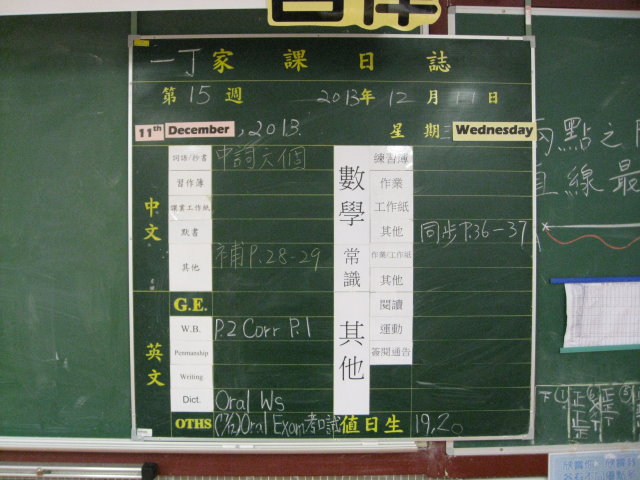 一丁家課日誌
第15週 2013年12月11日
11th December, 2013. 星期三 Wednesday
中文
詞語/抄書 中詞六個
習作簿
課業工作紙
默書
其他 補P.28-29
英文
G.E.
W.B. P.2 Corr P.1
Penmanship
Writing
Dict. Oral Ws
OTHS Oral Exam 考口試
數學
練習簿
作業
工作紙
其他 同步P.36-37
常識
作業/工作紙
其他
其他
閱讀
運動
簽閱通告
值日生 19,20
兩點之
直線最
下 正 正 正